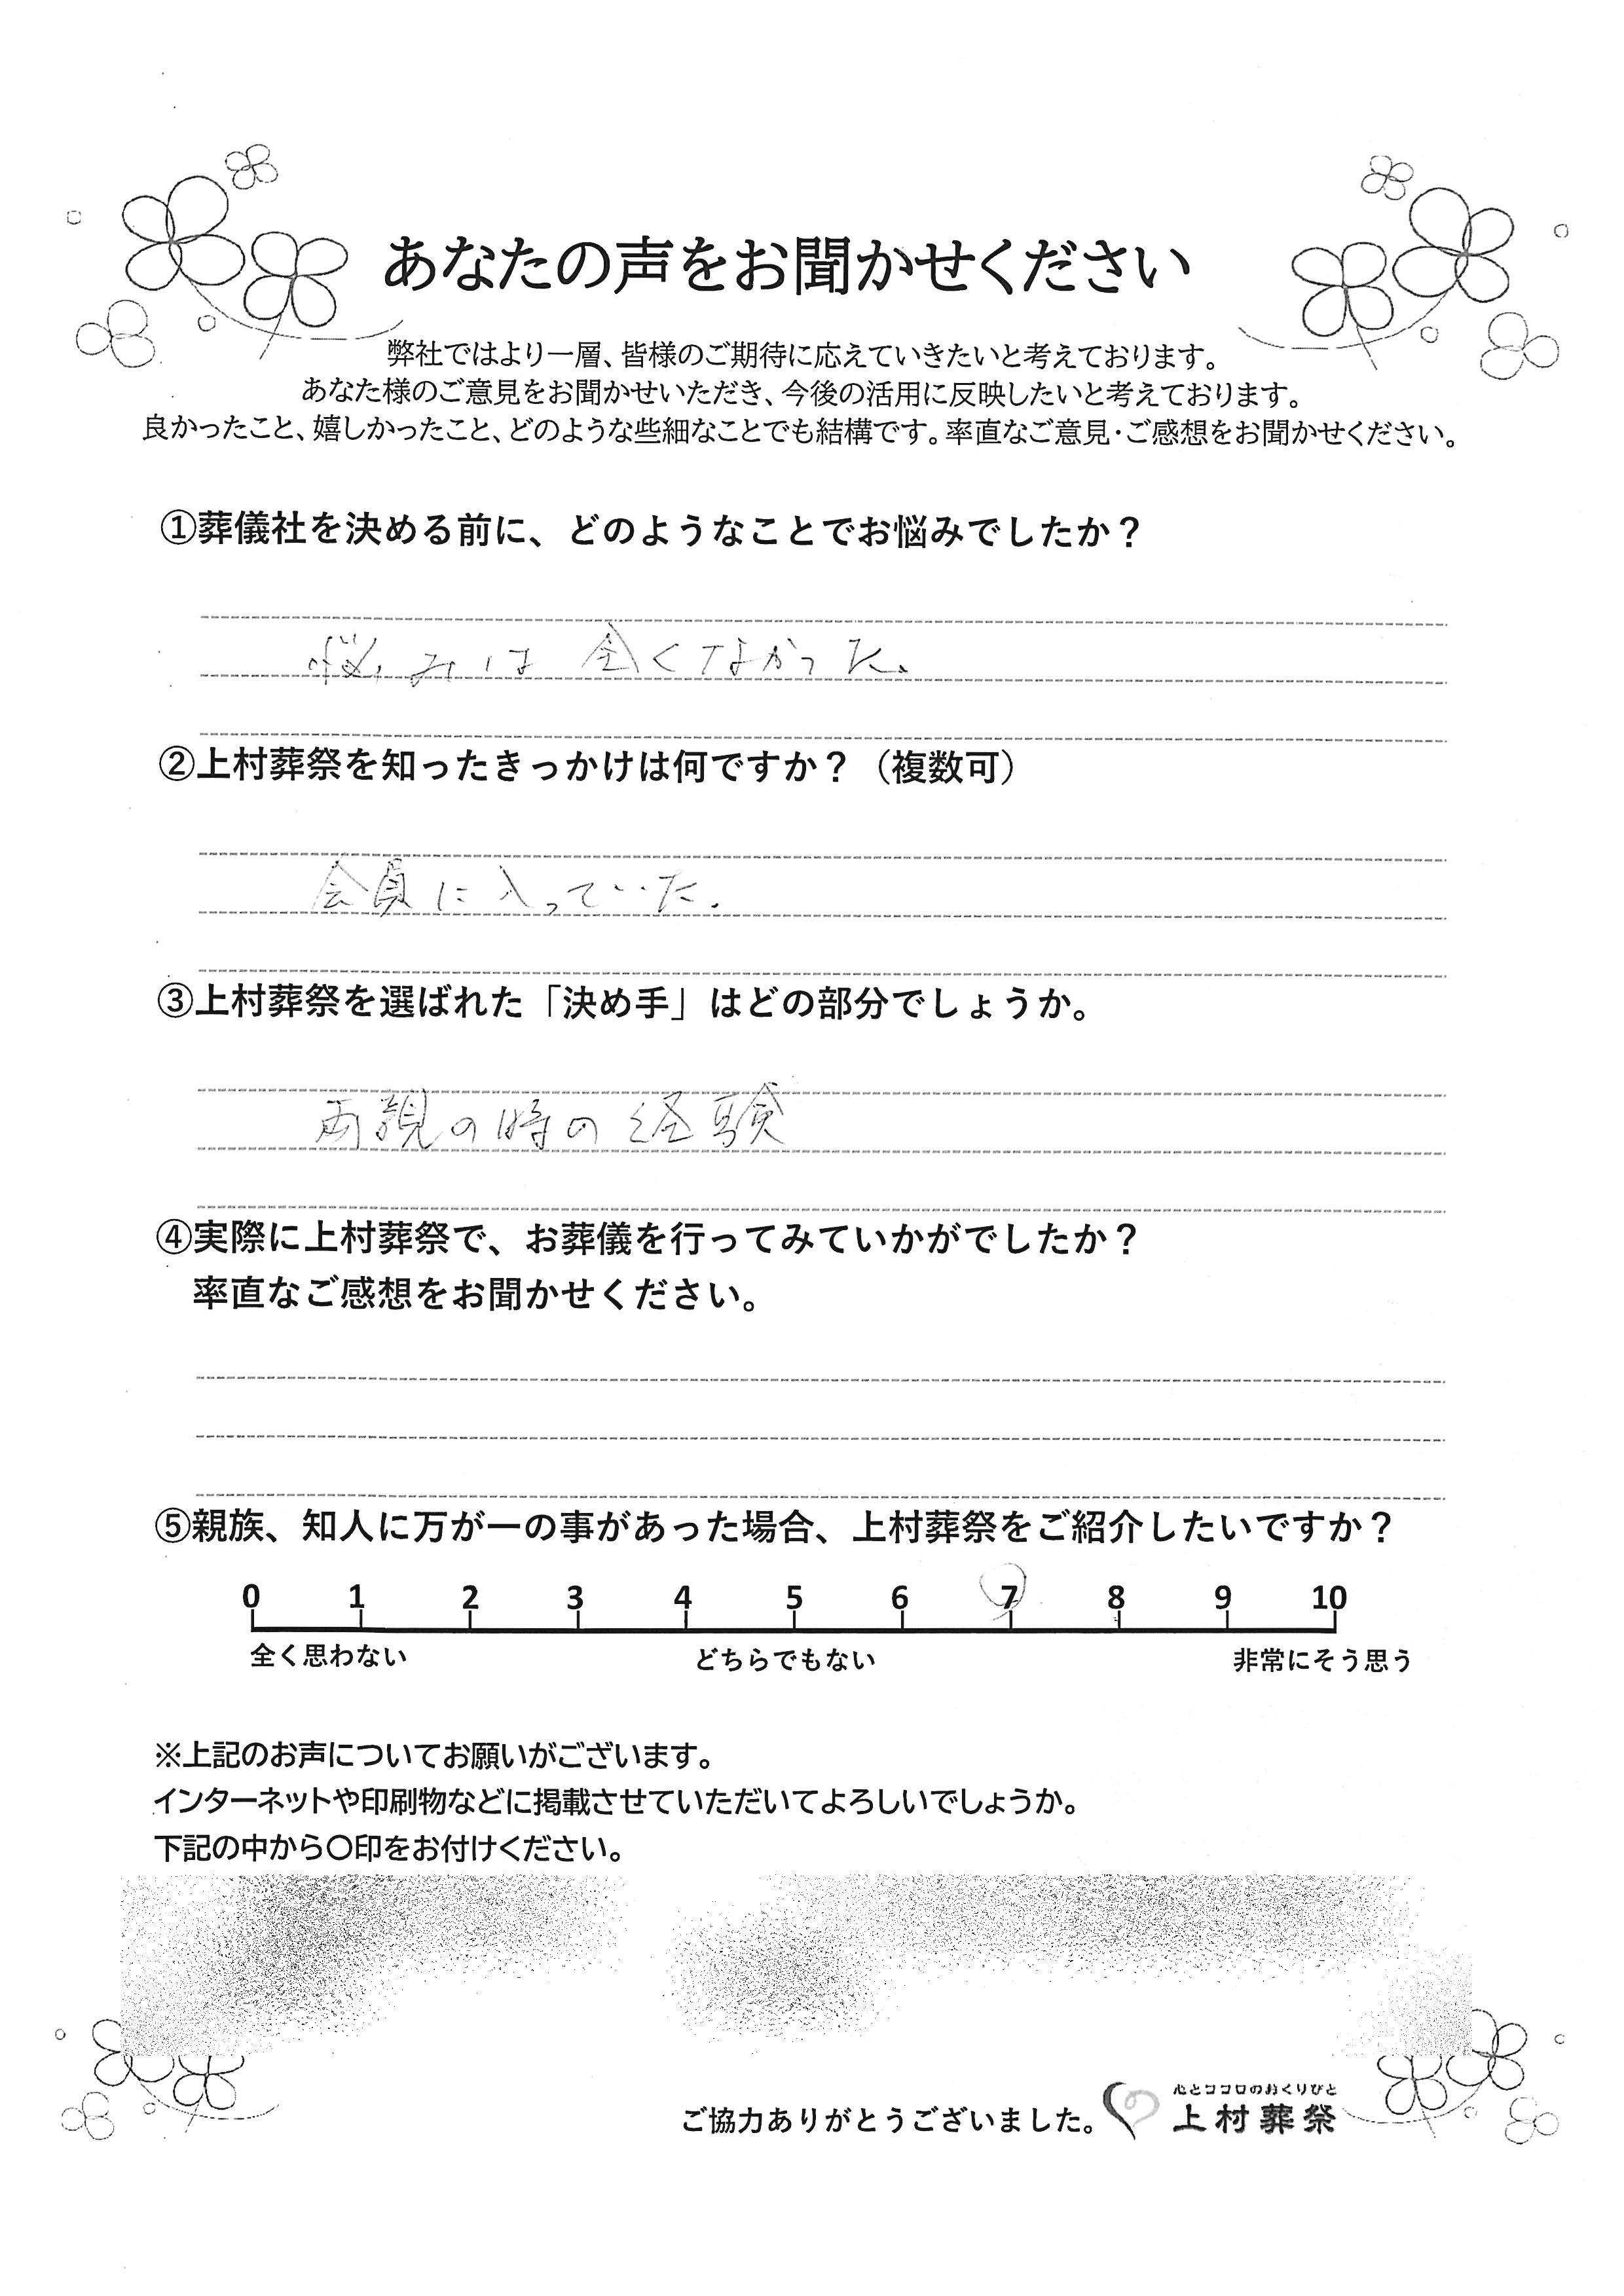 あなたの声をお聞かせください
弊社ではより一層、皆様のご期待に応えていきたいと考えております。
あなた様のご意見をお聞かせいただき、今後の活用に反映したいと考えております。
良かったこと、嬉しかったこと、どのような些細なことでも結構です。率直なご意見・ご感想をお聞かせください。
①葬儀社を決める前に、どのようなことでお悩みでしたか？
悩みは全くなかった。
②上村葬祭を知ったきっかけは何ですか？（複数可）
会員に入っていた。
③上村葬祭を選ばれた「決め手」はどの部分でしょうか。
両親の時の経験
④実際に上村葬祭で、お葬儀を行ってみていかがでしたか？
率直なご感想をお聞かせください。
⑤親族、知人に万が一の事があった場合、上村葬祭をご紹介したいですか？
0 1 2 3 4 5 6 7 8 9 10
全く思わない どちらでもない 非常にそう思う
※上記のお声についてお願いがございます。
インターネットや印刷物などに掲載させていただいてよろしいでしょうか。
下記の中から〇印をお付けください。
心とココロのおくりびと
ご協力ありがとうございました。 上村葬祭